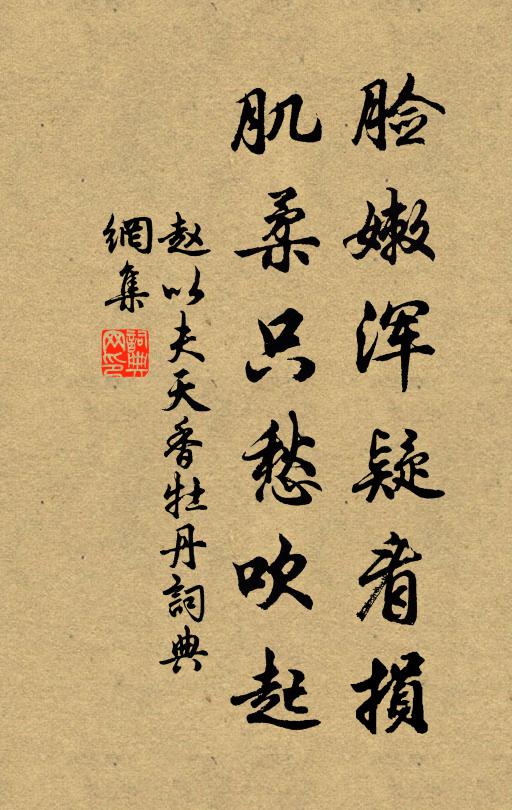 脸嫩浑疑看损
肌柔只愁吹起
赵以夫天香牡丹詞典
網集
詞典
网印